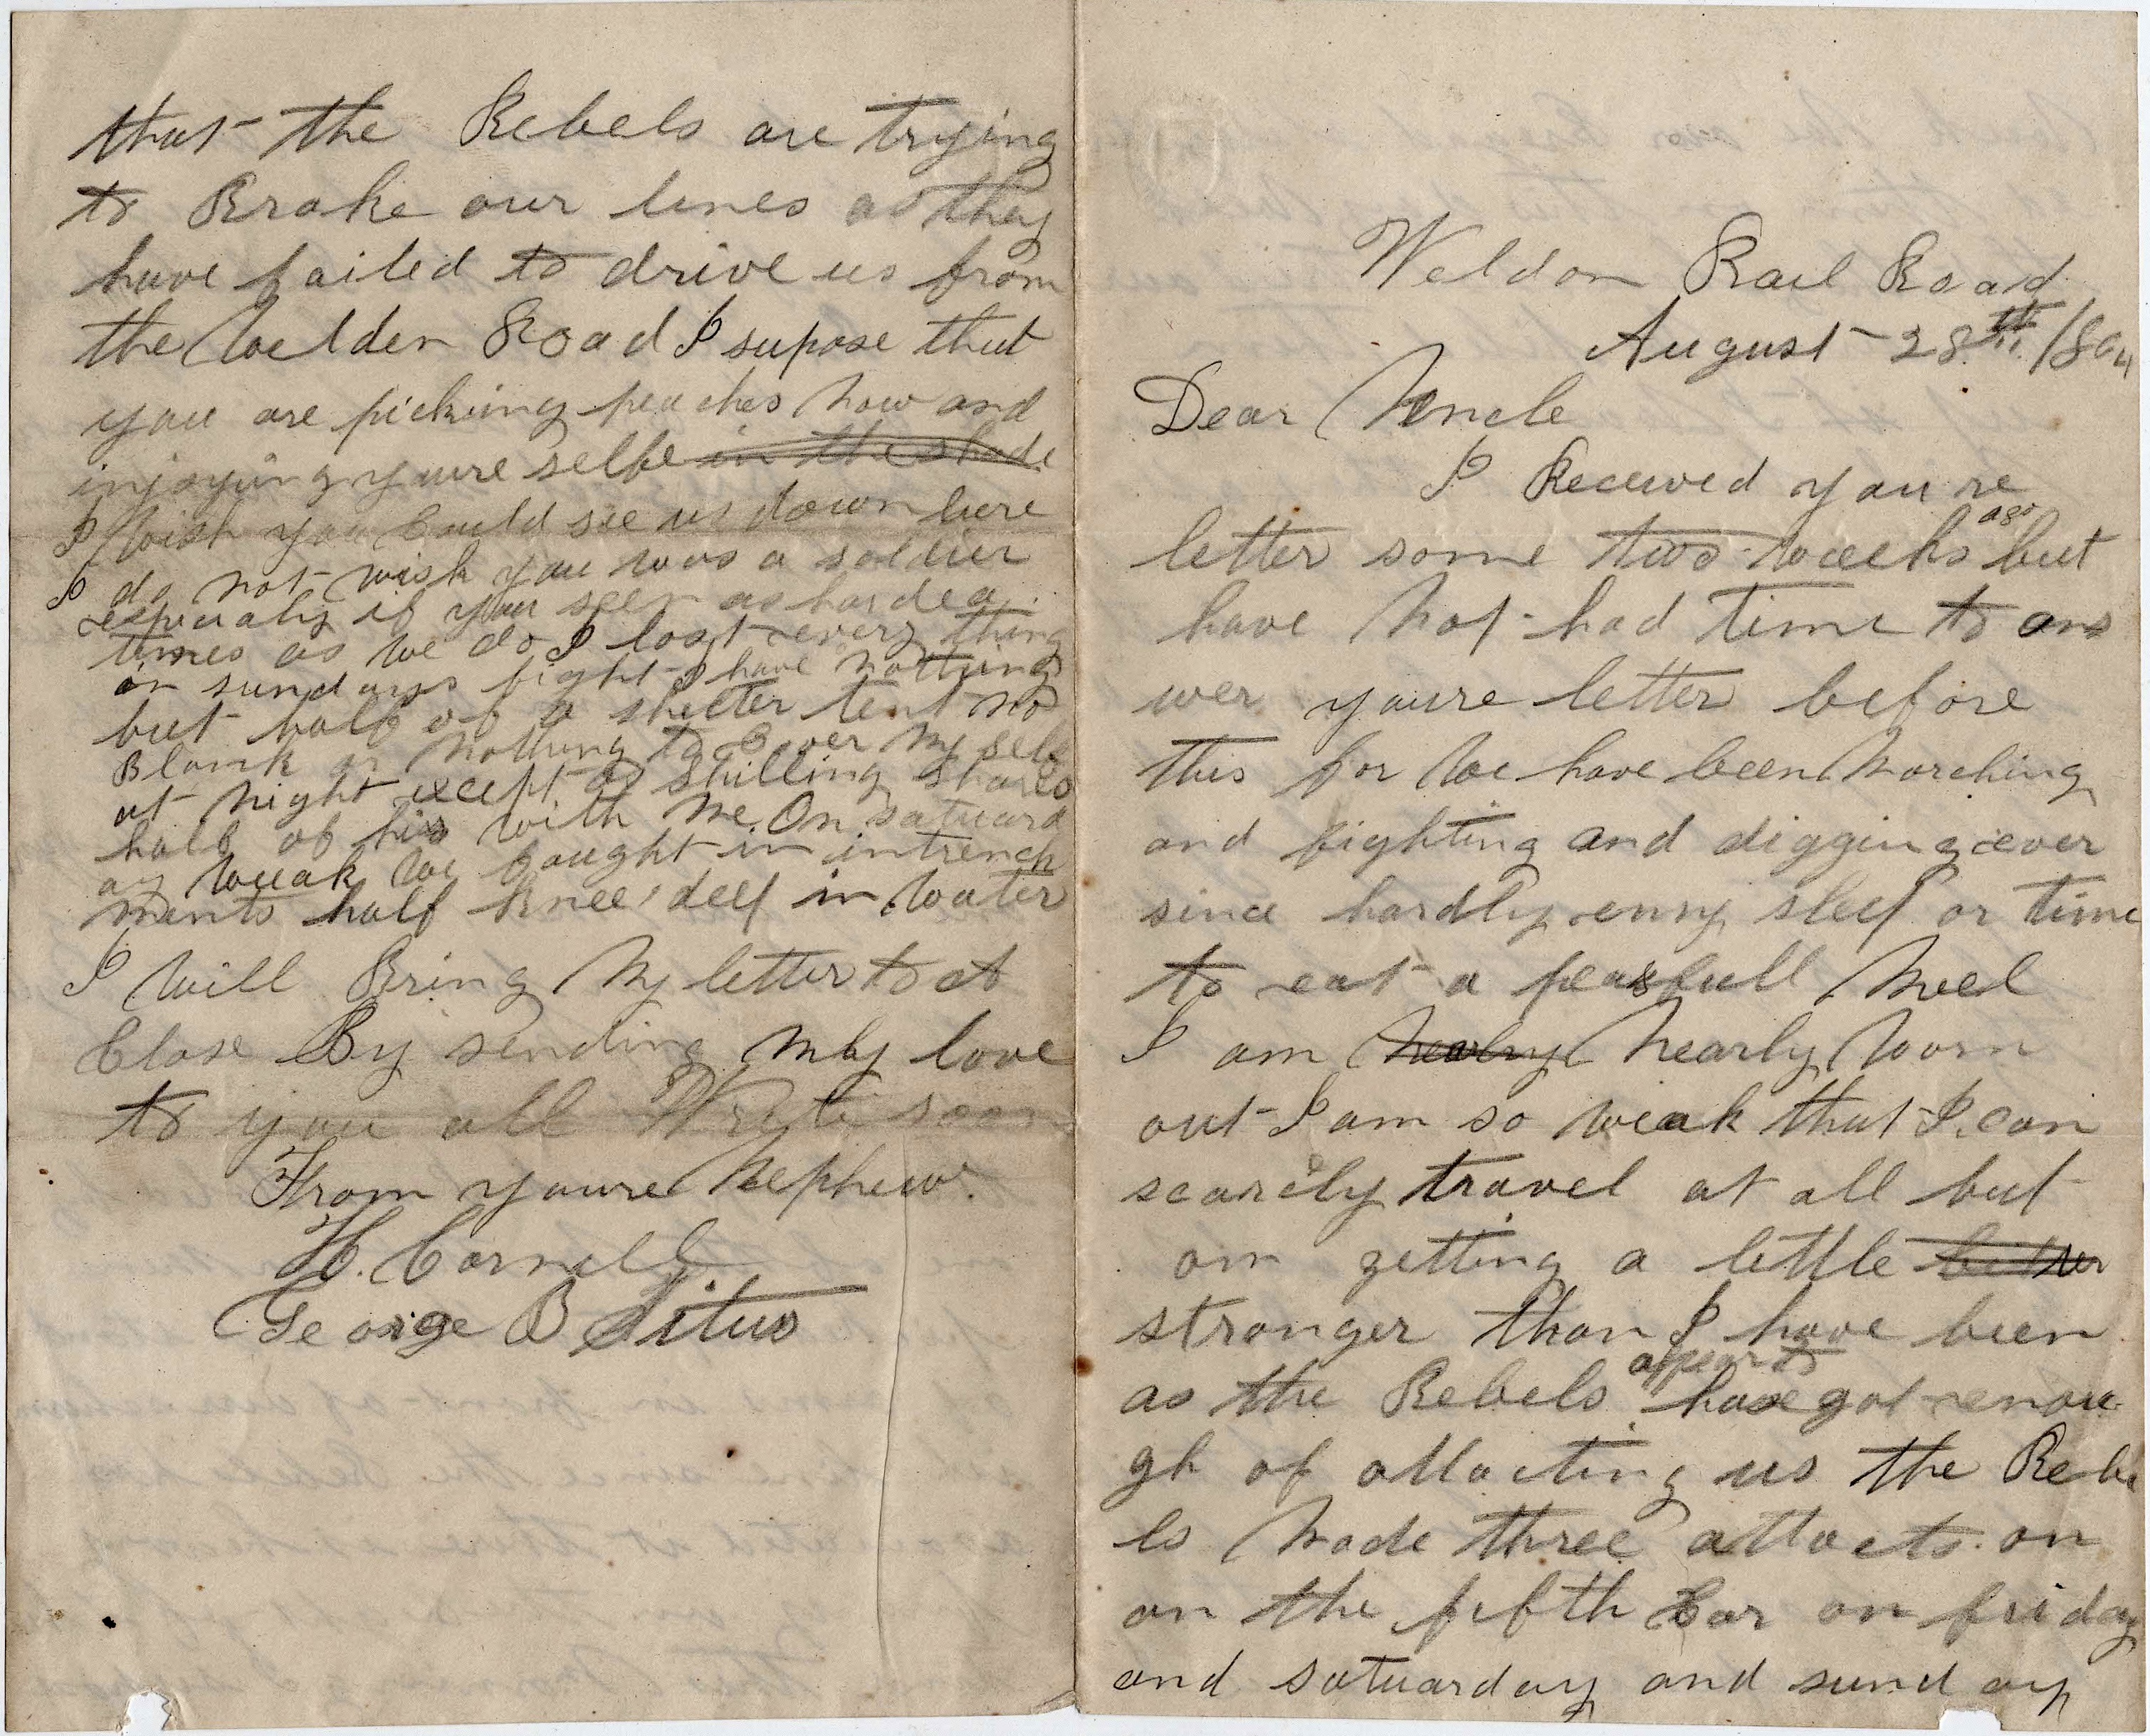 Weldon Rail Road
August 28th /864
Dear Uncle
I Recewed youre
letter some two weeks ago but
have not had time to ans
wer youre letter before
this for we have been marching
and fighting and digging ever
since hardly enny sleep or time
to eat a peasfull meel
I am nearly nearly worn
out I am so weak that I can
scarcly travel at all but
am getting a little better
stronger than I have been
as the Rebels appear to have got enou
gh of attacting us the Rebe
ls made three attacts on
on the fifth Cor on friday
and satuarday and sunday
that the Rebels are trying
to Brake our lines as they
have failed to drive us from
the Welden Road I supose that
you are picking peaches now and
injoying youre selfe in the shade
I wish you Could see us down here
I do not wish you was a soldier
especialy if you seen as hard
times as we do I lost every thing
in sundays fight I have nothing
but half of a shelter tent no
Blank or nothing to Cover my self
at night except G Shilling shares
half of his with me. On satuard
ay weak we fought in intrench
ments half knee deep in water
I will Bring my letter to at
Close By sending my love
to you all Write soon
From youre Nephew.
H. Cornell
George B Titus